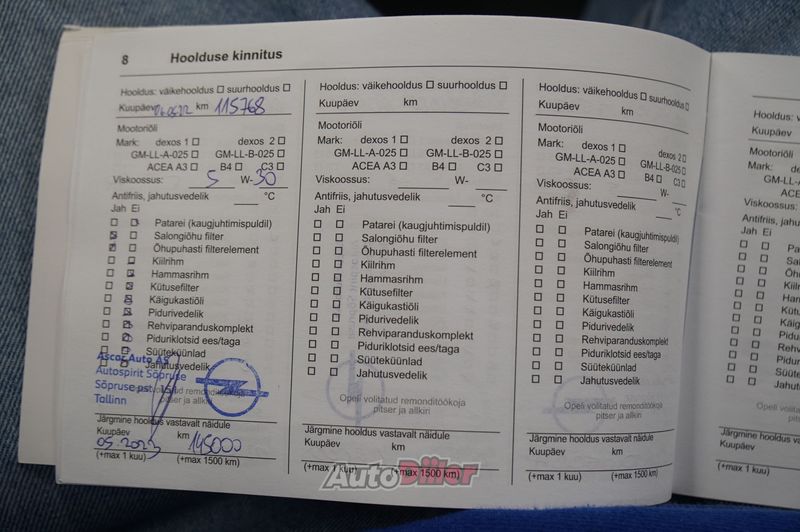 8 Hoolduse kinnitus
Hooldus: väikehooldus suurhooldus
Kuupäev km 115768
Mootoriõli
Mark: dexos 1 dexos 2
GM-LL-A-025 GM-LL-B-025
ACEA A3 B4 C3
Viskoossus: 5 W-30
Antifriis, jahutusvedelik °C
Jah Ei
Patarei (kaugjuhtimispuldil)
Salongiõhu filter
Õhupuhasti filterelement
Kiilrihm
Hammasrihm
Kütusefilter
Käigukastiõli
Pidurivedelik
Rehviparanduskomplekt
Piduriklotsid ees/taga
Süüteküünlad
Jahutusvedelik
Ascar Auto AS
Autospirit Sõpruse
Sõpruse pst. 151
Tallinn
Opeli volitatud remonditöökoja
pitser ja allkiri
Järgmine hooldus vastavalt näidule
Kuupäev km
05.2023 145000
(+max 1 kuu) (+max 1500 km)
Hooldus: väikehooldus suurhooldus
Kuupäev km
Mootoriõli
Mark: dexos 1 dexos 2
GM-LL-A-025 GM-LL-B-025
ACEA A3 B4 C3
Viskoossus: W-
Antifriis, jahutusvedelik °C
Jah Ei
Patarei (kaugjuhtimispuldil)
Salongiõhu filter
Õhupuhasti filterelement
Kiilrihm
Hammasrihm
Kütusefilter
Käigukastiõli
Pidurivedelik
Rehviparanduskomplekt
Piduriklotsid ees/taga
Süüteküünlad
Jahutusvedelik
Opeli volitatud remonditöökoja
pitser ja allkiri
Järgmine hooldus vastavalt näidule
Kuupäev km
(+max 1 kuu) (+max 1500 km)
Hooldus: väikehooldus suurhooldus
Kuupäev km
Mootoriõli
Mark: dexos 1 dexos 2
GM-LL-A-025 GM-LL-B-025
ACEA A3 B4 C3
Viskoossus: W-
Antifriis, jahutusvedelik °C
Jah Ei
Patarei (kaugjuhtimispuldil)
Salongiõhu filter
Õhupuhasti filterelement
Kiilrihm
Hammasrihm
Kütusefilter
Käigukastiõli
Pidurivedelik
Rehviparanduskomplekt
Piduriklotsid ees/taga
Süüteküünlad
Jahutusvedelik
Opeli volitatud remonditöökoja
pitser ja allkiri
Järgmine hooldus vastavalt näidule
Kuupäev km
(+max 1 kuu) (+max 1500 km)
Hooldus:
Kuupäev
Mootoriõli
Mark:
GM-LL-A
ACEA
Viskoossus:
Antifriis, jahutus
Jah Ei
AutoDiiler